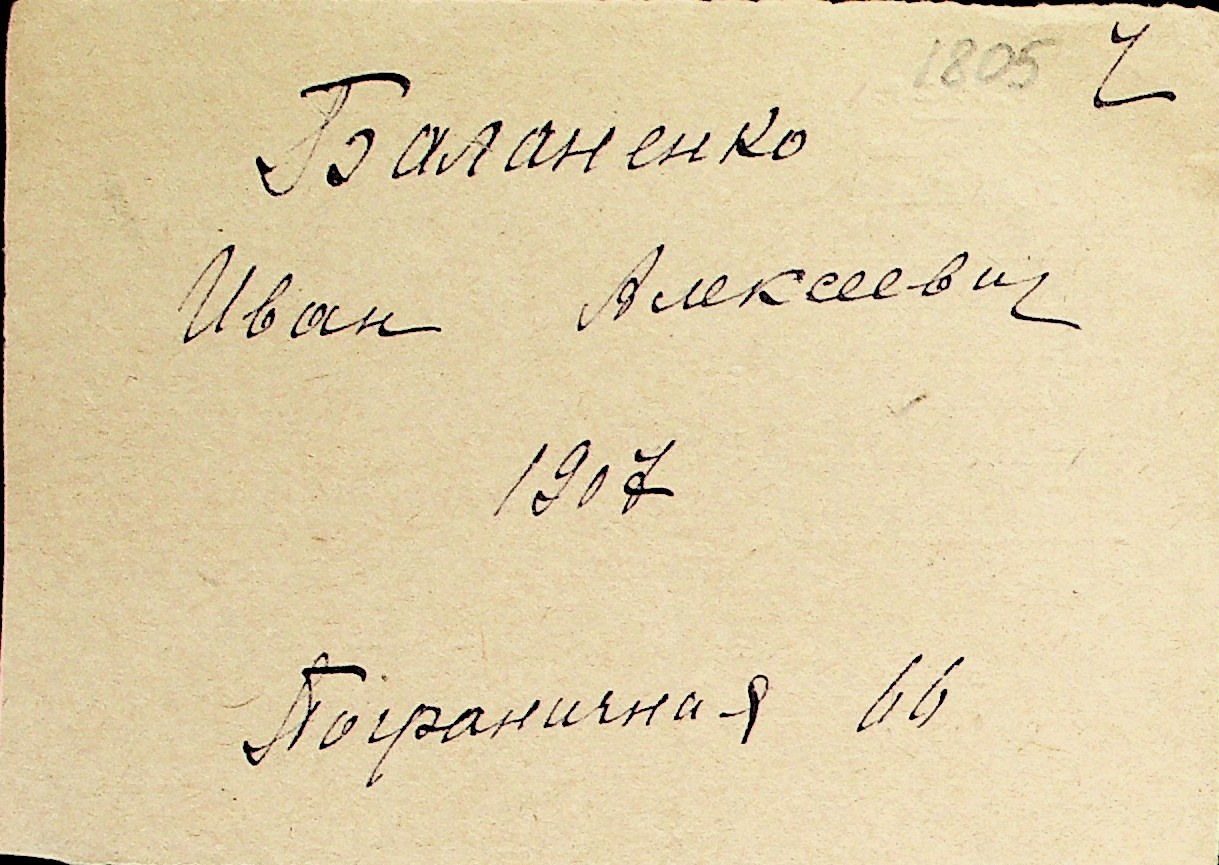 1805 ч
Баланенко
Иван Алексеевич
1907
Пограничная 66